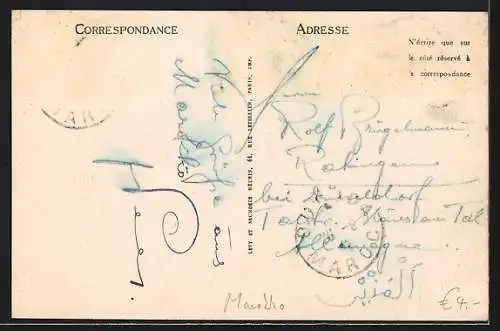 CORRESPONDANCE
ADRESSE
N'écrire que sur
le côté réservé à
la correspondance
LEVY ET NEURDEIN RÉUNIS, 44, RUE LETELLIER, PARIS, IMP.
Viele Grüße
aus
Marokko
Herrn
Rolf Brügelmann,
Ratingen
bei Düsseldorf
Haus am Tal
Allemagne
MAROC
MAR
Marokko
€ 4.-